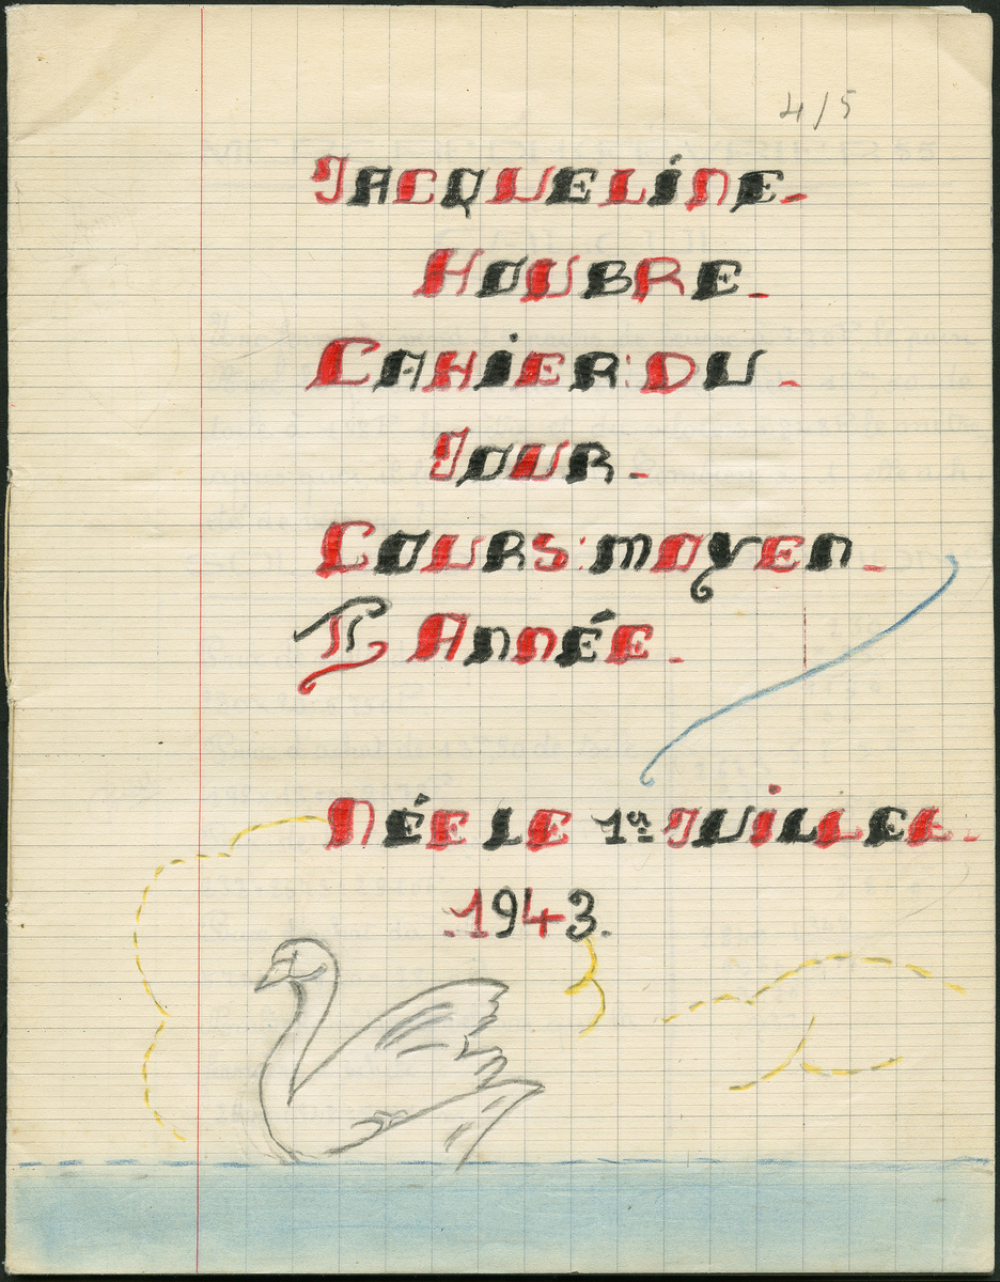 4/5
JACQUELINE.
HOUBRE.
CAHIER: DU.
JOUR.
COURS: MOYEN.
ANNÉE.
NÉE LE 1er JUILLET.
.1943.